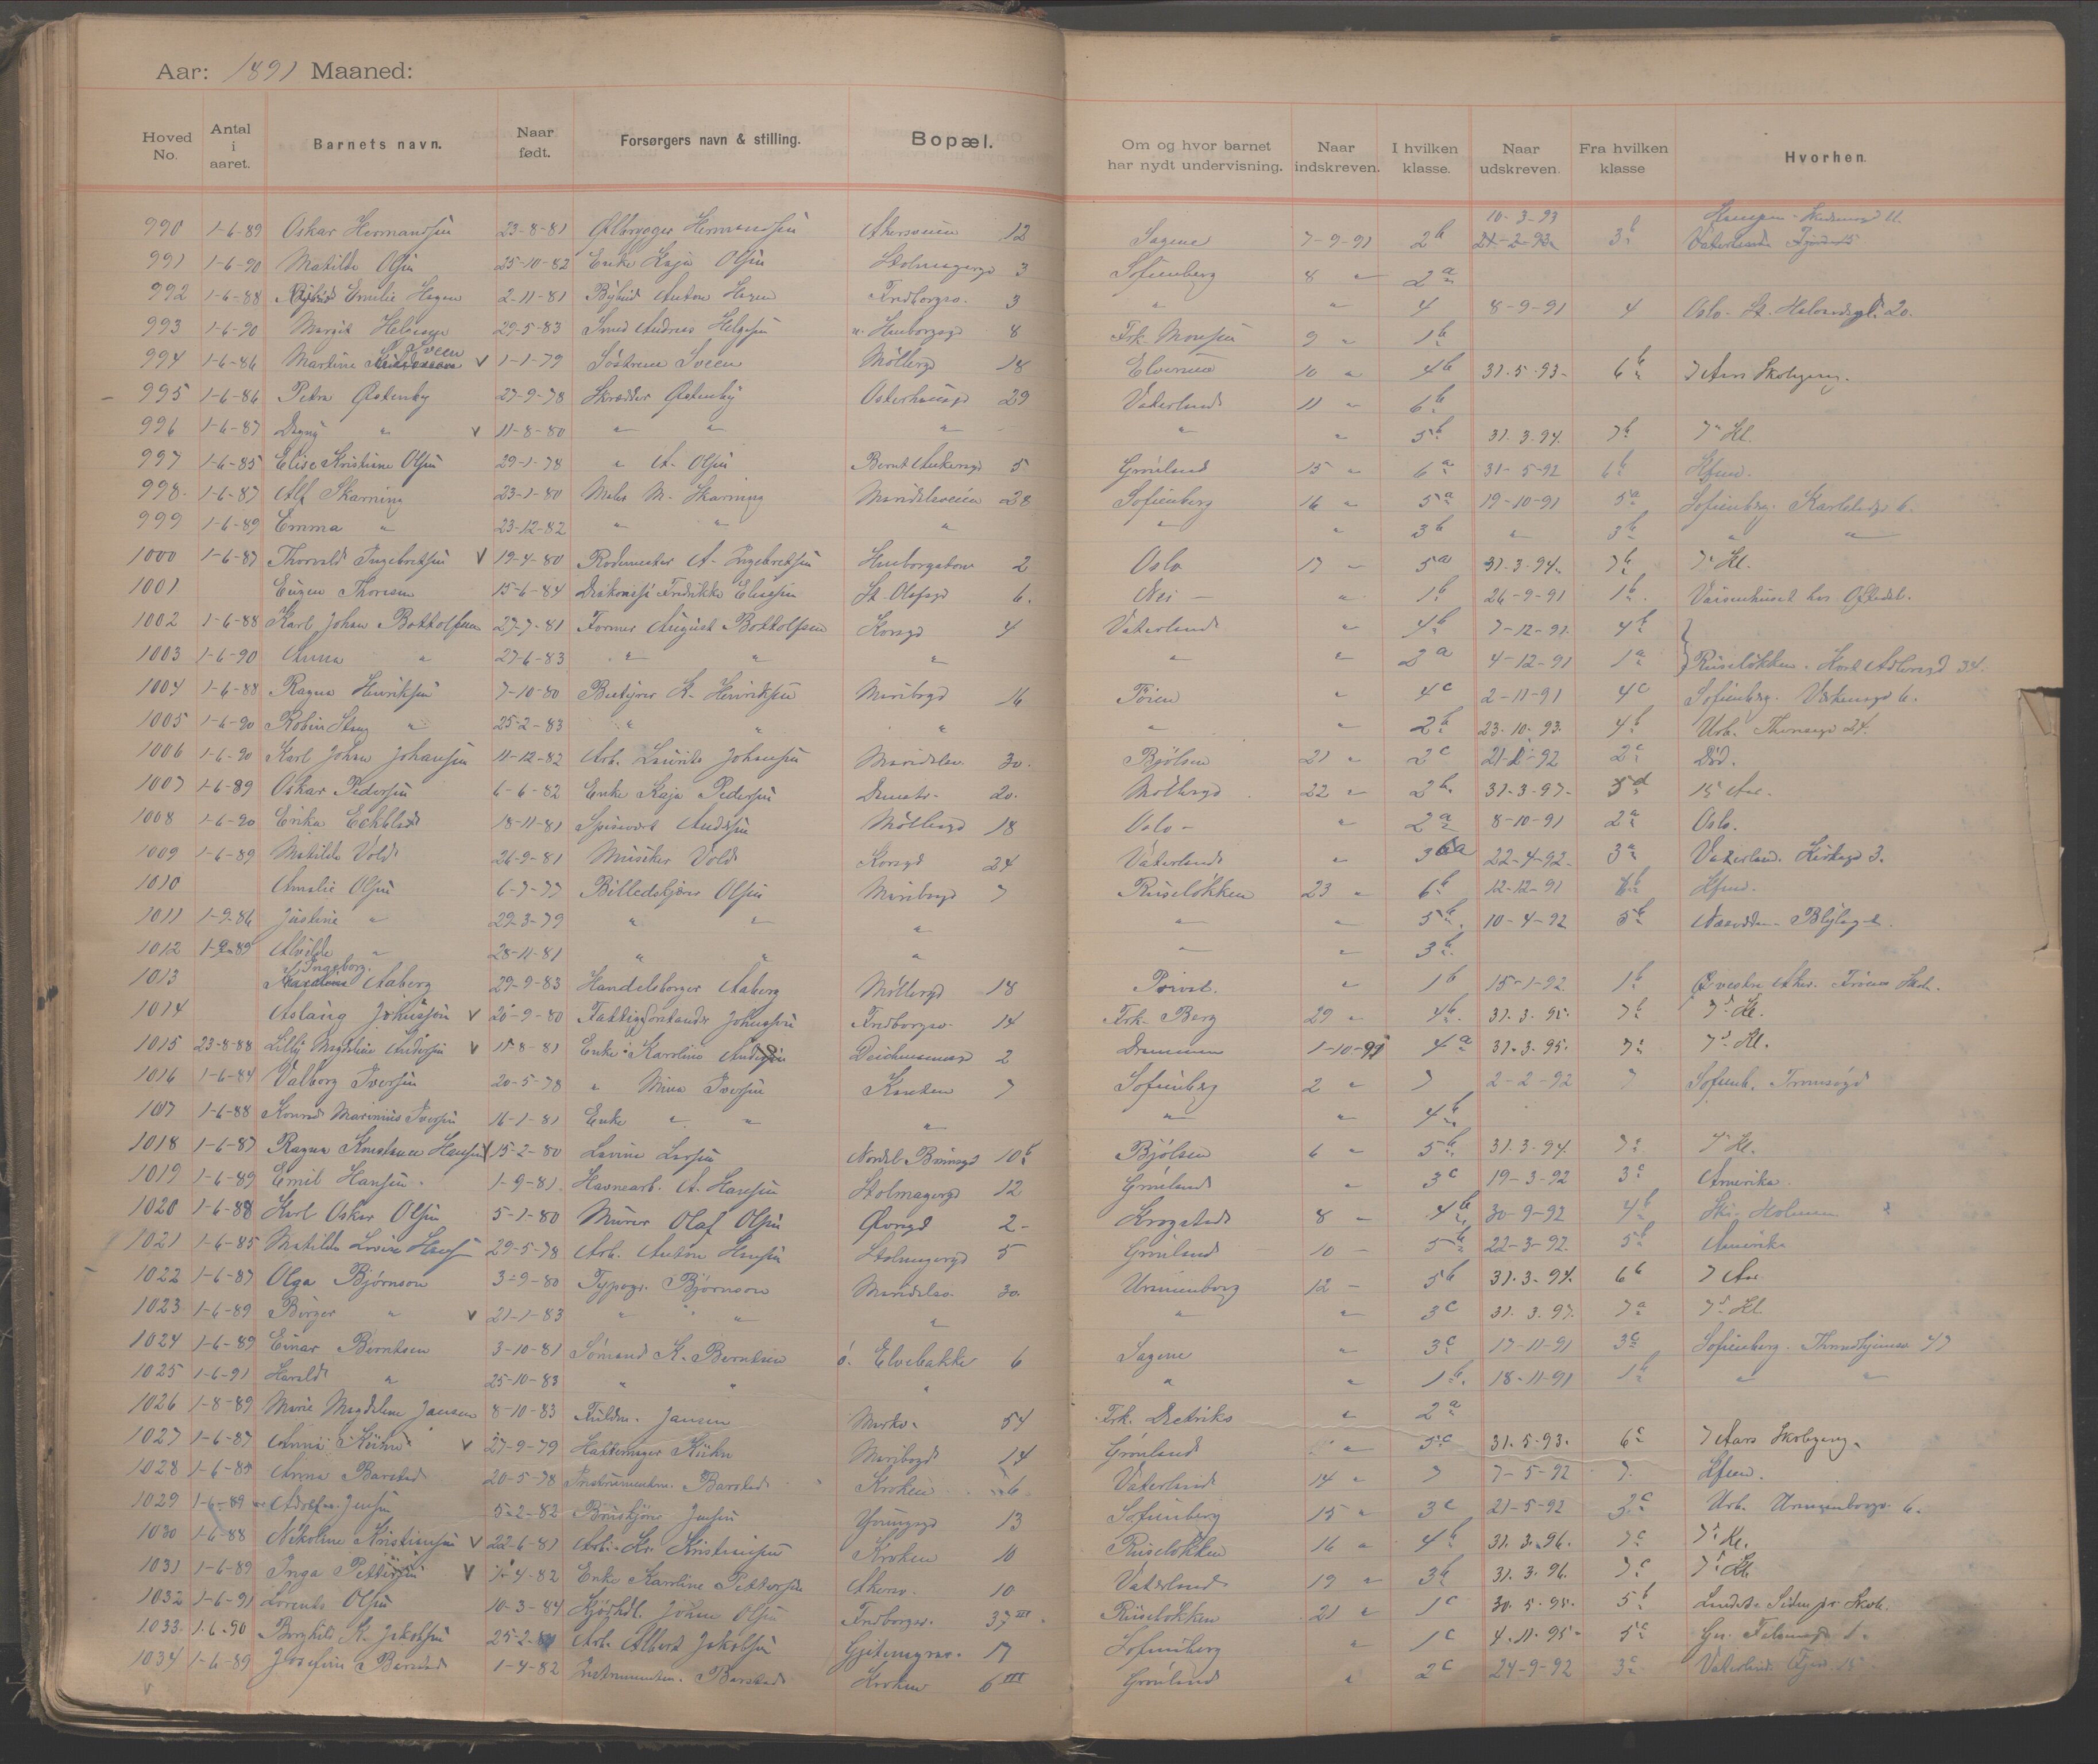 Aar: 1891 Maaned:
Hoved No. Antal i aaret. Barnets navn. Naar født. Forsørgers navn & stilling. Bopæl. Om og hvor barnet har nydt undervisning. Naar indskreven. I hvilken klasse. Naar udskreven. Fra hvilken klasse Hvorhen.
990 1-6-89 Oskar Hermandsen 23-8-81 Ølbrygger Hermandsen Akersveien 12 Sagene 7-9-91 2b 10-3-93 3b
991 1-6-90 Matilde Olsen 25-10-82 Enke Kaja Olsen Stolmagergd 3 Sofienberg 8 " 2a
992 1-6-88 Emilie Hagen 2-11-81 Bybud Anton Hagen Fredborgsv. 3 " " 4 8-9-91 4 Oslo. St. Halvardsgd. 20.
993 1-6-90 Margit Helgesen 29-5-83 Smed Andreas Helgesen 8 Frk. Monsen 9 " 1b
994 1-6-86 Martine Sveen v 1-1-79 Søstrene Sveen Möllergd 18 Elverum 10 " 4b 31-5-93- 6b 7 Aars Skolegang.
995 1-6-86 Petra Østenby 27-9-78 Skrædder Østenby Osterhausgd 29 Vaterland 11 " 6b
996 1-6-87 Dagny " v 11-8-80 " " " " " 5b 31.3.94. 7b 7. Kl.
997 1-6-85 Elise Kristine Olsen 29-1-78 " A. Olsen Bernt Ankersgd 5 Grönland 15 " 6a 31-5-92 6b Kfem.
998. 1-6-87 Alf Skarning 23-1-80 Maler M. Skarning Maridalsveien 28 Sofienberg 16 " 5a 19-10-91 5a Sofienberg. Karlstadgd 6.
999 1-6-89 Emma " 23-12-82 " " " " " 3b " 3b " "
1000 1-6-87 Thorvald Ingebretsen v 19-4-80 Rodemester A. Ingebretsen 2 Oslo 17 - 5a 31.3.94. 7b 7. Kl.
1001 Eugen Thoresen 15-6-84 Diakonisse Fredrikke Eliesen St. Olafsgd 6. Nei - " 1b 26-9-91 1b. Vaisenhuset
1002 1-6-88 Karl Johan Bottolfsen 27-7-81 Former August Bottolfsen Korsgd 4 Vaterland " 4b 7-12-91. 4b
1003 1-6-90 Anna " 27-6-83 " " " " " 2a 4-12-91 1a Ruselökken. 34.
1004 1-6-88 Ragna Henriksen 7-10-80 K. Henriksen Maribogd 16 Töien " 4c 2-11-91 4c Sofienberg. 6.
1005 1-6-90 Robin " 25-2-83 " " " " " 2b 23.10.93. 4b Urb. 24.
1006 1-6-90 Karl Johan Johansen 11-12-82 Arb. Laurits Johansen Maridalsv. 30. Bjölsen 21 " 2c 92 2c Död.
1007 1-6-89 Oskar Pedersen 6-6-82 Enke Kaja Pedersen Damstr. 20. Möllergd. 22 " 2b. 31-3-97- 5d 15 Aar.
1008 1-6-90 Erika 18-11-81 Spisevært Andersen Möllergd 18 Oslo - " 2a 8-10-91 2a Oslo.
1009 1-6-89 Matilde Vold 26-9-81 Musiker Vold Korsgd 24 Vaterland " 3a 22-4-92- 3a Vaterland. 3.
1010 Amalie Olsen 6-7-77 Billedskjærer Olsen Maribogd 7 Ruselökken 23 " 6b 12-12-91 6b Kfem.
1011 1-9-86 Justine " 29-3-79 " " " " " 5b. 10-4-92 5b
1012 1-9-89 Alvilde " 28-11-81 " " " " " 3b.
1013 Ingeborg Aaberg 29-9-83 Handelsborger Aaberg Möllergd 18 Privat. " 1b 15-1-92 1b
1014 Aslaug Johnsen v 20-9-80 Fattigforstander Johnsen Fredborgsv. 14 Frk. Berg 29 " 4b. 31.3.95. 7b 7d. Kl.
1015 23-8-88 Lilly Magdaline Andersen v 11-8-81 Enke Karoline Andersen Deichmansgd 2 Drammen 1-10-91 4a 31.3.95. 7a 7d Kl.
1016 1-6-84 Valborg Iversen 20-5-78 " Mina Iversen Kroken 7 Sofienberg 2 " 7 2-2-92 7 Sofienb. Tromsögd
1017 1-6-88 Konrad Marinius Iversen 16-1-81 Enke " " " " " 4b
1018 1-6-87 Ragna Konstance Hansen v 15-2-80 Lovise Larsen Nordal Brunsgd 10b Bjölsen 6 " 5b. 31.3.94. 7a 7. Kl.
1019 1-6-89 Emil Hansen. 1-9-81. Havnearb. A. Hansen Stolmagergd 12 Grönland " 3c 19-3-92 3c Amerika.
1020 1-6-88 Karl Oskar Olsen 5-1-80 Murer Olaf Olsen Övregd 2- Krogstad 8 - 4b 30-9-92 4b Ski- Holmen
1021 1-6-85 Matilde Lovise 29-5-78 Arb. Anton Hansen Stolmagergd 5 Grönland 10 - 5b 22-3-92. 5b Amerika
1022 1-6-87 Olga Bjørnson 3-9-80 Typogr. Bjørnson Maridalsv. 30. Uranienborg 12 - 5b 31.3.94. 6b 7 Aar
1023 1-6-89 Borger " v 21-1-83 " " " " " 3c 31.3.97. 7a 7d Kl.
1024 1-6-89 Einar Berntsen 3-10-81 Sömand K. Berntsen ö. Elvebakke 6 Sagene " 3c 17-11-91 3c Sofienberg. 47
1025 1-6-91 Harald " 25-10-83 " " " " " 1b. 18-11-91 1b " "
1026 1-8-89 Marie Magdalene Jansen 8-10-83 Fuldm. Jansen Markv. 54 Frk. Dedriks " 2a
1027 1-6-87 Anna Kühn v 27-9-79 Hattemager Kühn Maribogd 14 Grönland " 5c 31.5.93. 6c 7 Aars Skolegang.
1028 1-6-85 Anna Barstad 20-5-78 Instrumentm. Barstad Kroken 6 Vaterland 14 " 7 7-5-92 7. Kfem.
1029 1-6-89 Jensen 5-2-82 Jensen Youngsgd 13 Sofienberg 15 " 3c 21-5-92 3c Urb. Uranienborgv. 6.
1030 1-6-88 Nikoline Kristiansen v 22-6-81 Arb. Kr. Kristiansen Kroken 10 Ruselökken 16 " 4b 31.3.96. 7c 7d Kl.
1031 1-6-89 Inga Pettersen v 4-82 Enke Karoline Pettersen Akersv. 10 Vaterland 19 " 3b 31.3.96. 7c 7d Kl.
1032 1-6-91 Lorents Olsen 10-3-84 Johan Olsen Fredborgsv. 37III Ruselökken 21 " 1c 30.5.95. 5b
1033. 1.6.90 Borghild K. Jakobsen 25-2- Arb. Albert Jakobsen 17 Sofienberg " 1c 4.11.95- 5c
1034 1-6-89 Josefine Barstad 1-4-82 Instrumentm. Barstad Kroken 6III Grönland " 2c 24-9-92 3c Vaterland.